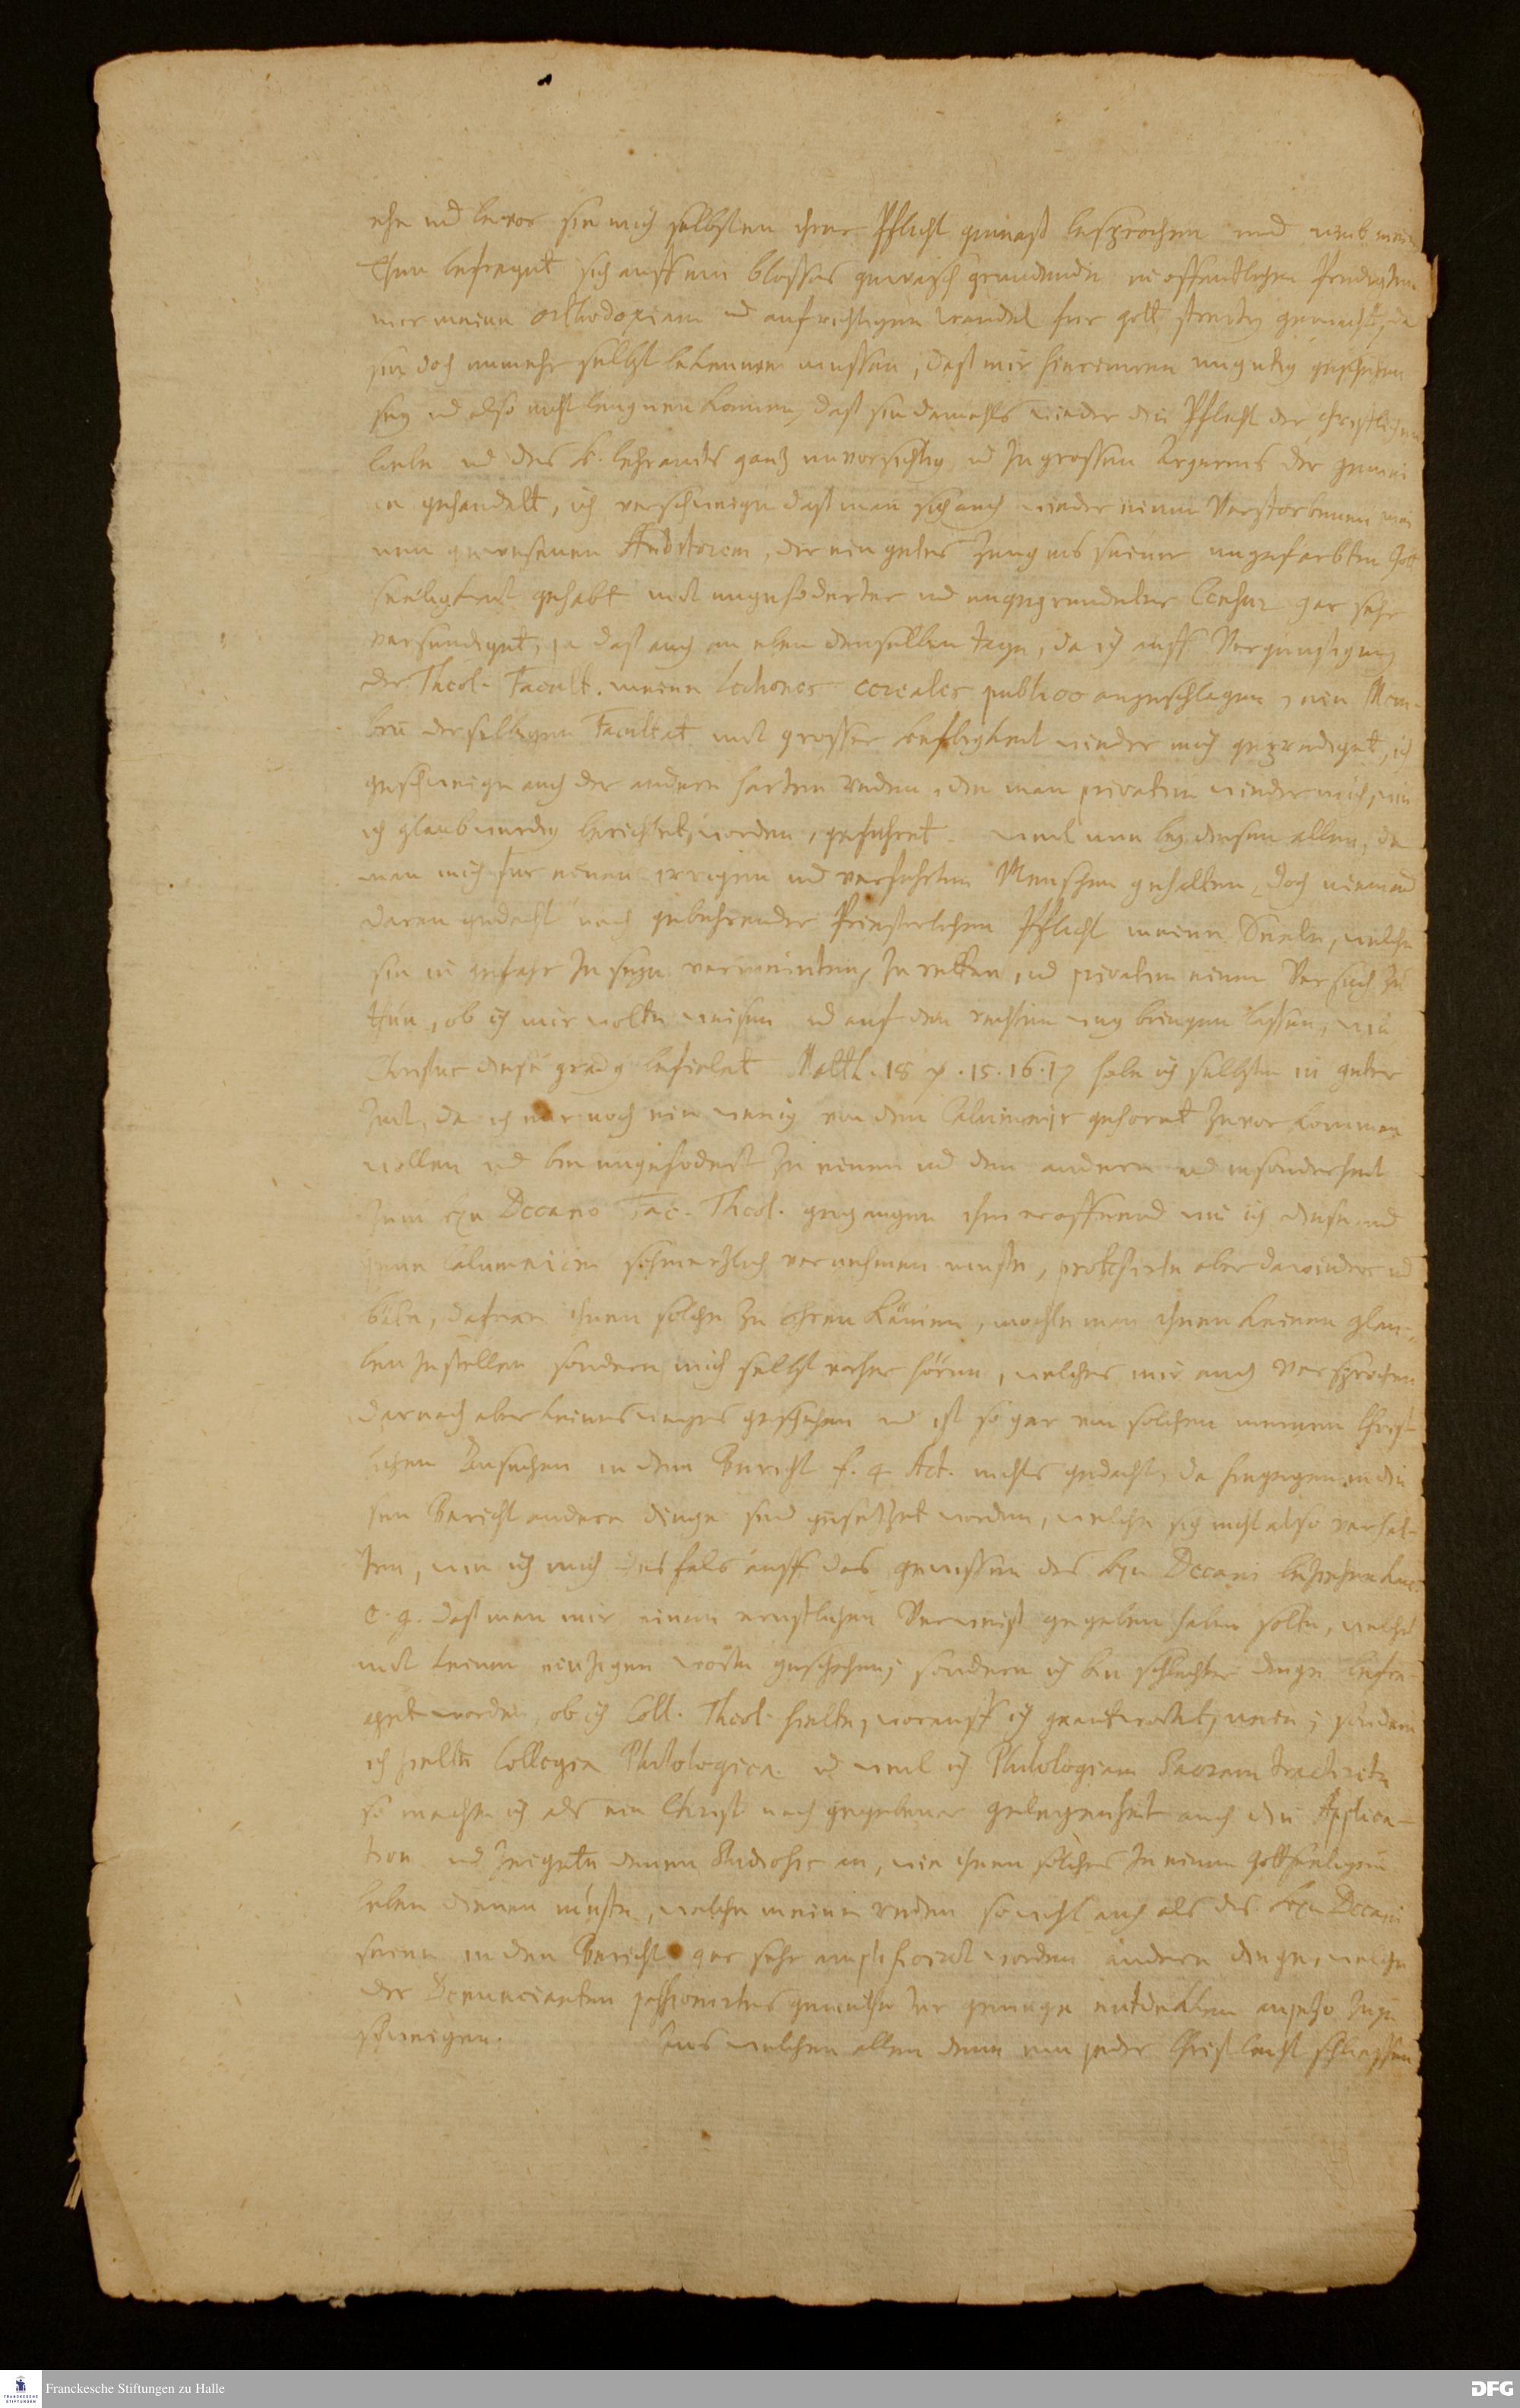 ehe und bevor sie mich selbsten ihrer Pflicht gemäß besprochen und umb mein
Thun befraget sich auff ein blosses gewäsch gründende in offentlichen Predigten
mir meine orthodoxiam und aufrichtigen Wandel für Gott streitig gemacht, da
sie doch nunmehr selbst bekennen müssen, daß mir hierinnen ungütig geschehen
sey und also nicht leugnen können, daß sie damahls wieder die Pflicht der Christlichen
Liebe und des H. Lehramts gantz unvorsichtig und zu grossem Ärgernis der gemei
ne gehandelt, ich verschweige daß man sich auch wieder einen Verstorbenen mei
nen gewesenen Auditorem, der ein gutes Zeugnis seiner ungefärbten Gott
seeligkeit gehabt mit ungefoderter und ungegründeter Censur gar sehr
versündiget, ja daß auch an eben demselben tage, da ich auff Vergünstigung
der Theol. Facult. meine Lectiones cereales publico angeschlagen, ein Mem-
brū derselbigen Facultät mit grosser Hefftigkeit wieder mich geprediget, ich
geschweige auch der andern harten reden, die man privatim wieder mich, wie
ich glaubwürdig berichtet worden, geführet. Weil nun bey diesen allen, da
man mich für einen irrigen und verführten Menschen gehalten, doch niemand
daran gedacht nach gebührender Priesterlichen Pflicht meine Seele, welche
sie in gefahr zu seyn vermeinten, zu retten, und privatim einen Versuch zu
thun, ob ich mir wolte weisen und auf den rechten weg bringen lassen, wie
Christus diese grad9 befielet Matth. 18 v. 15. 16. 17 habe ich selbsten in guter
Zeit, da ich nur noch ein wenig von den Calumniis gehöret zuvor kommen
wollen und bin ungefodert zu einem und dem andern und insonderheit
zum Hrn Decano Fac. Theol. gegangen ihm eröffnend wie ich diese und
jene Calumnien schmertzlich vernehmen müste, protestirte aber dawieder und
bäte, dafern ihnen solche zu ohren kämen, möchte man ihnen keinen glau-
ben zustellen sondern mich selbst vorher hören, welches mir auch versprochen
darnach aber keines weges geschehen und ist so gar von solchen meinem Christ-
lichen Ansuchen in dem Bericht f. 4 Act. nichts gedacht, da hingegen in die
sen Bericht andere dinge sind gesetzet worden, welche sich nicht also verhal-
ten, wie ich mich desfals auff das gewissen des Hrn Decani beziehen kan.
e. g. daß man mir einen ernstlichen Verweiß gegeben haben solte, welches
mit keinem einzigen worte geschehen, sondern ich bin schlechter dinge befra-
get worden, ob ich Coll. Theol. hielte, worauff ich geantwortet, nein; sondern
ich hielte Collegia Philologica. und weil ich Philologiam Sacram tractirte
so machte ich als ein Christ nach gegebener gelegenheit auch die Applica-
tion und zeigete denen Studiosis an, wie ihnen solches zu einem gottseeligen
leben dienen müste, welche meine reden so wohl auch als des Hrn Decani
seine in den Bericht gar sehr amplificirt worden andere dinge, welche
der Denuncianten passionirtes gemüthe zur genüge entdecken anjetzo zuge
schweigen. Aus welchen allen denn ein jeder Christ leicht schliessen
Franckesche Stiftungen zu Halle
DFG